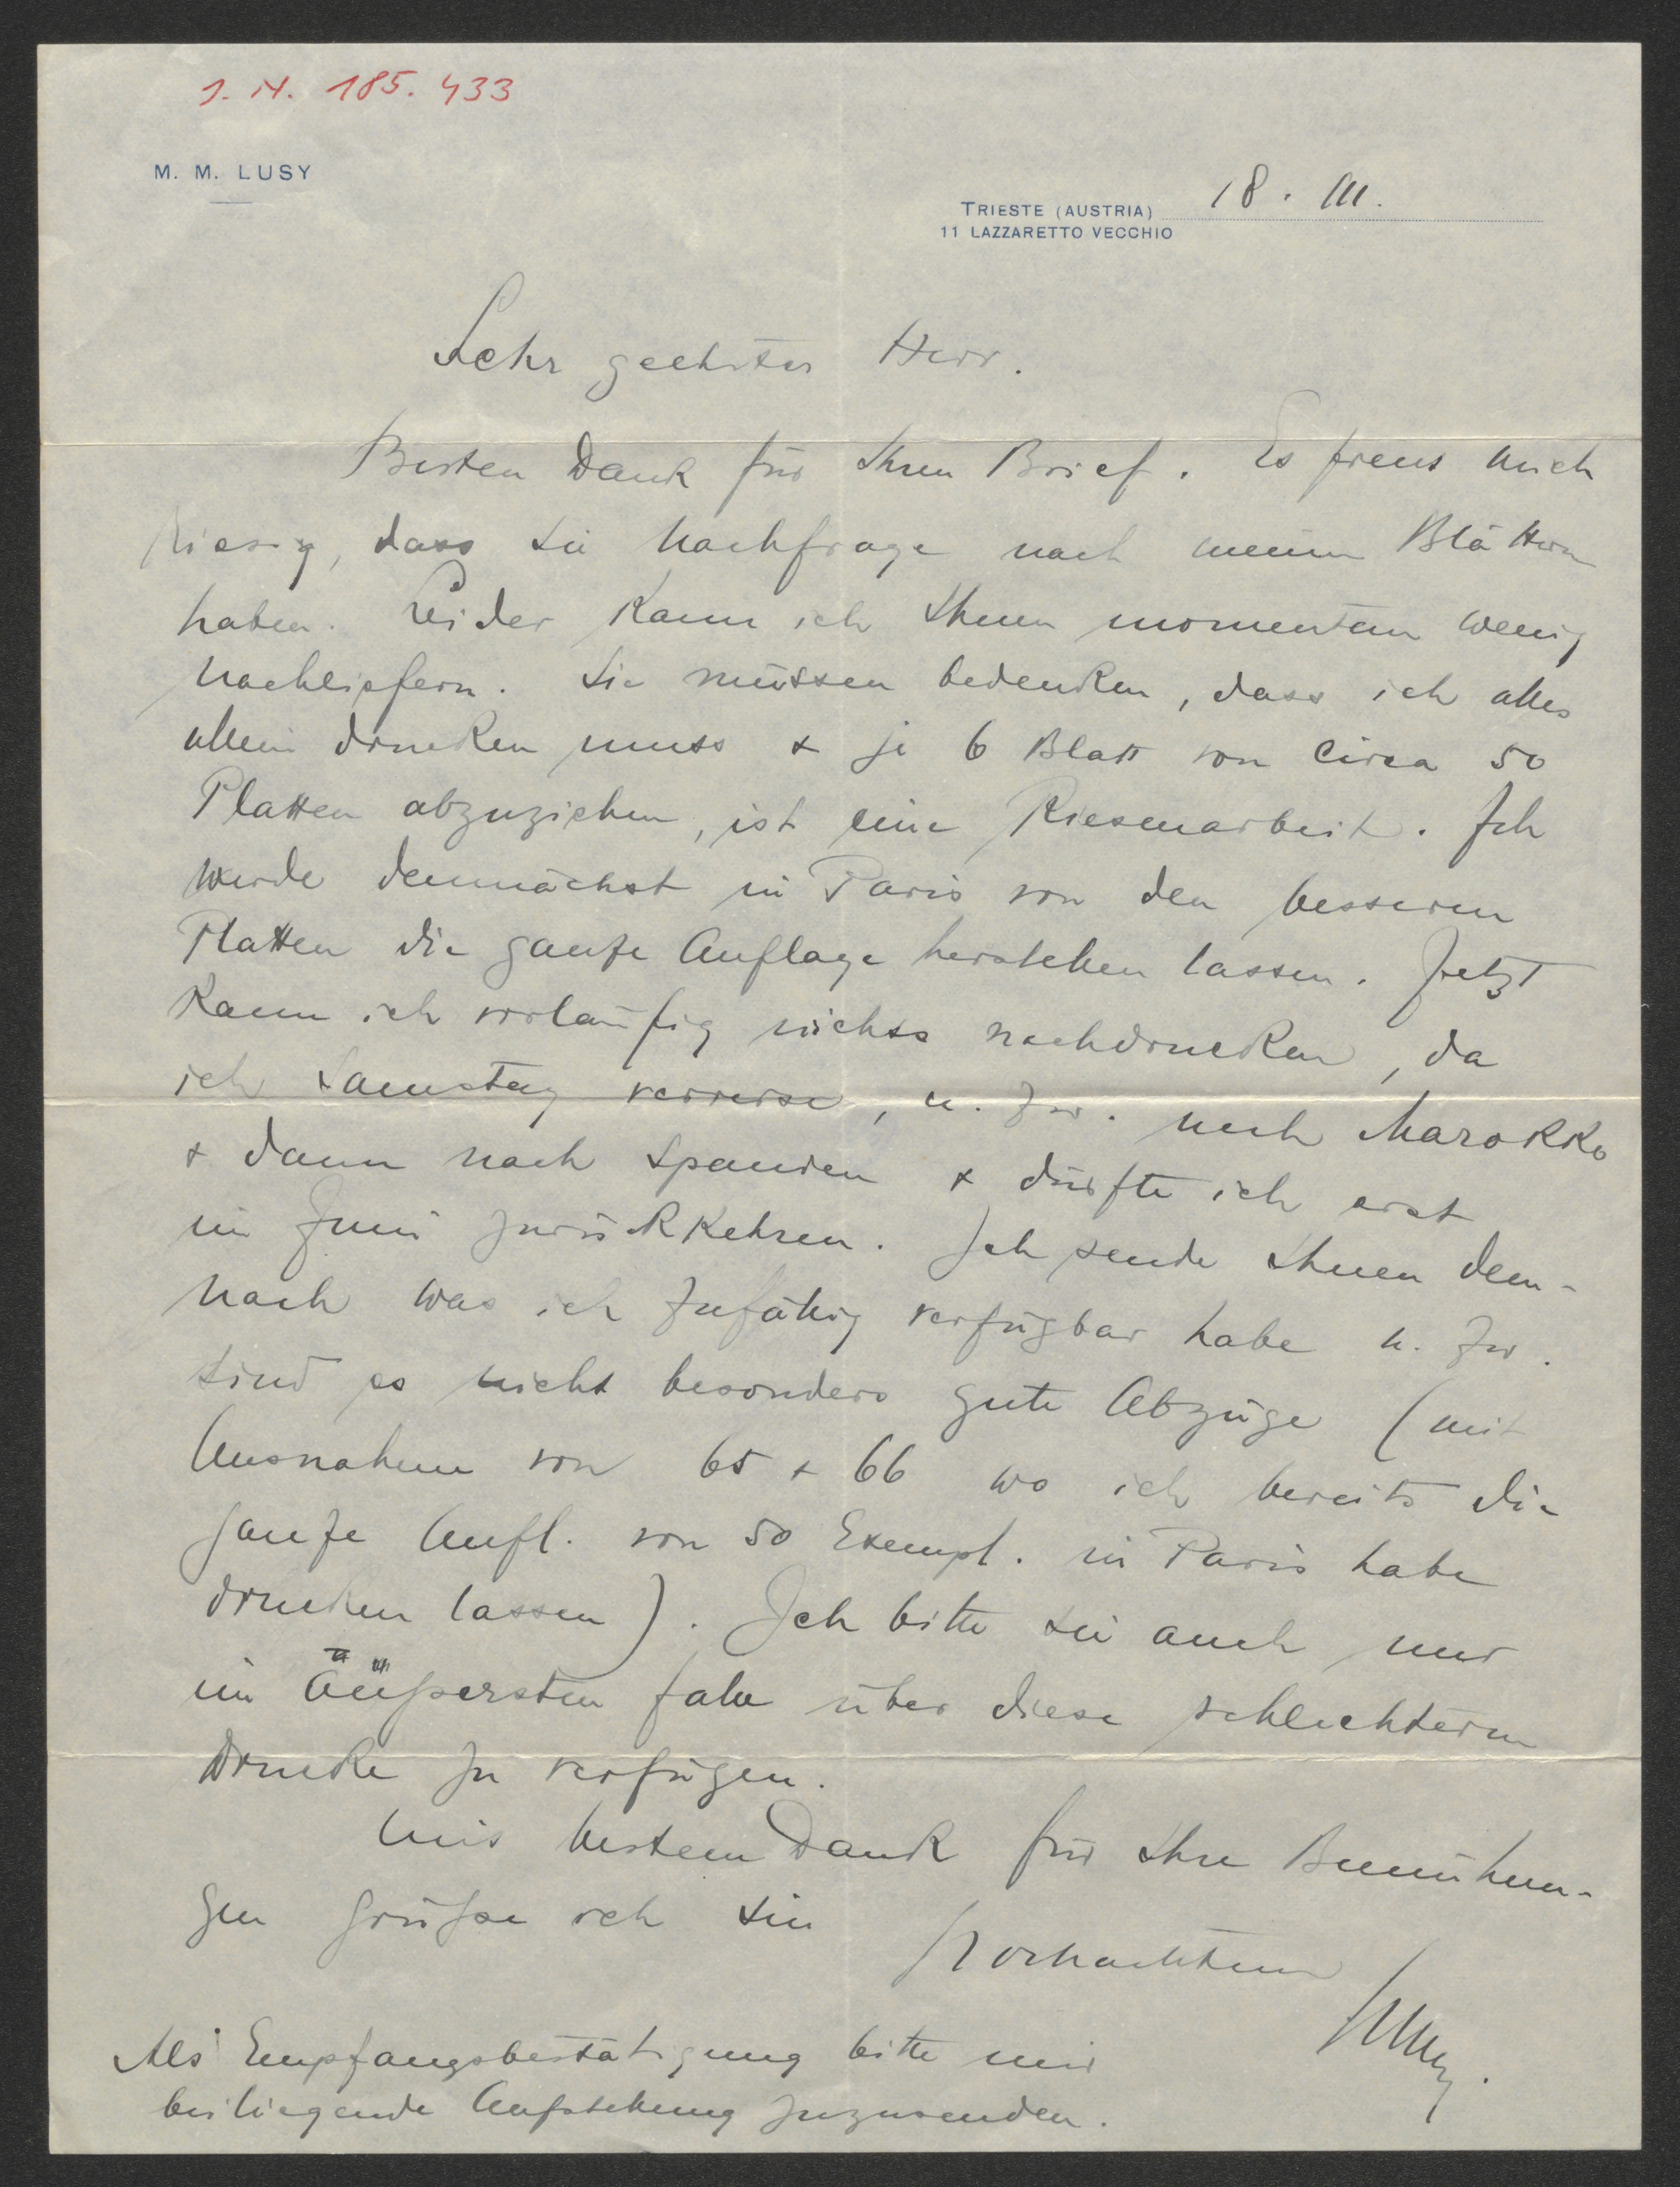 J. N. 185.433
M. M. LUSY
TRIESTE (AUSTRIA) 18. III.
11 LAZZARETTO VECCHIO
Sehr geehrter Herr.
Besten Dank für Ihren Brief. Es freut mich
riesig, dass Sie Nachfrage nach meinen Blättern
haben. Leider kann ich Ihnen momentan wenig
nachliefern. Sie müssen bedenken, dass ich alles
allein drucken muss & je 6 Blatt von circa 50
Platten abzuziehen, ist eine Riesenarbeit. Ich
werde demnächst in Paris von den besseren
Platten die ganze Auflage herstellen lassen. Jetzt
kann ich vorläufig nichts nachdrucken, da
ich Samstag verreise, u. zw. nach Marokko
& dann nach Spanien & dürfte ich erst
im Juni zurückkehren. Ich sende Ihnen dem-
nach was ich zufällig verfügbar habe u. zw.
sind es nicht besonders gute Abzüge (mit
Ausnahme von 65 & 66 wo ich bereits die
ganze Aufl. von 50 Exempl. in Paris habe
drucken lassen). Ich bitte Sie auch nur
im äußersten Falle über diese schlechteren
Drucke zu verfügen.
Mit bestem Dank für Ihre Bemühun-
gen grüße ich Sie
Hochachtend
Lusy.
Als Empfangsbestätigung bitte mir
beiliegende Aufstellung zuzusenden.